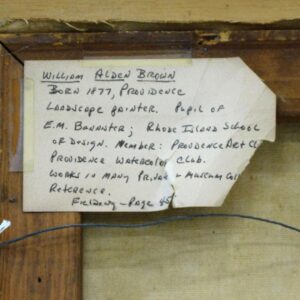 WILLIAM ALDEN BROWN
BORN 1877, PROVIDENCE
LANDSCAPE PAINTER. PUPIL OF
E.M. BANNISTER; RHODE ISLAND SCHOOL
OF DESIGN. MEMBER: PROVIDENCE ART CL
PROVIDENCE WATERCOLOR CLUB.
WORKS IN MANY PRIVATE MUSEUM COL
REFERENCE.
FIELDING - PAGE